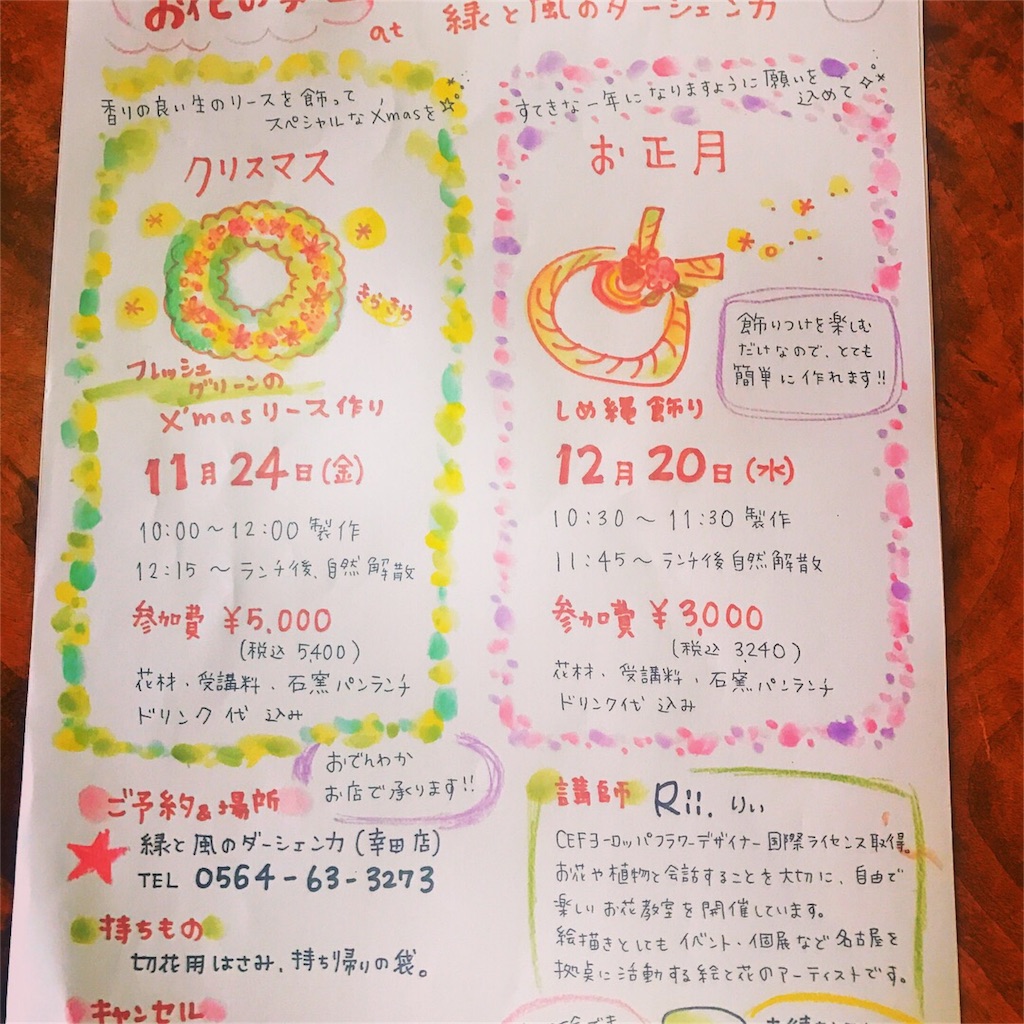 お花の
at 緑と風のダーシェンカ
香りの良い生のリースを飾って
スペシャルなX'masを
クリスマス
きらきら
フレッシュ
グリーンの
X'masリース作り
11月24日(金)
10:00〜12:00 製作
12:15〜ランチ後、自然解散
参加費 ¥5,000
(税込 5,400)
花材・受講料・石窯パンランチ
ドリンク代 込み
すてきな一年になりますように願いを
込めて
お正月
飾りつけを楽しむ
だけなので、とても
簡単に作れます!!
しめ縄飾り
12月20日(水)
10:30〜11:30 製作
11:45〜ランチ後自然解散
参加費 ¥3,000
(税込 3,240)
花材・受講料・石窯パンランチ
ドリンク代 込み
おでんわか
お店で承ります!!
ご予約&場所
緑と風のダーシェンカ(幸田店)
TEL 0564-63-3273
持ちもの
切花用はさみ、持ち帰りの袋。
キャンセル
講師 Rii. りぃ
CEFヨーロッパフラワーデザイナー国際ライセンス取得。
お花や植物と会話することを大切に、自由で
楽しいお花教室を開催しています。
絵描きとしてもイベント・個展など名古屋を
拠点に活動する絵と花のアーティストです。